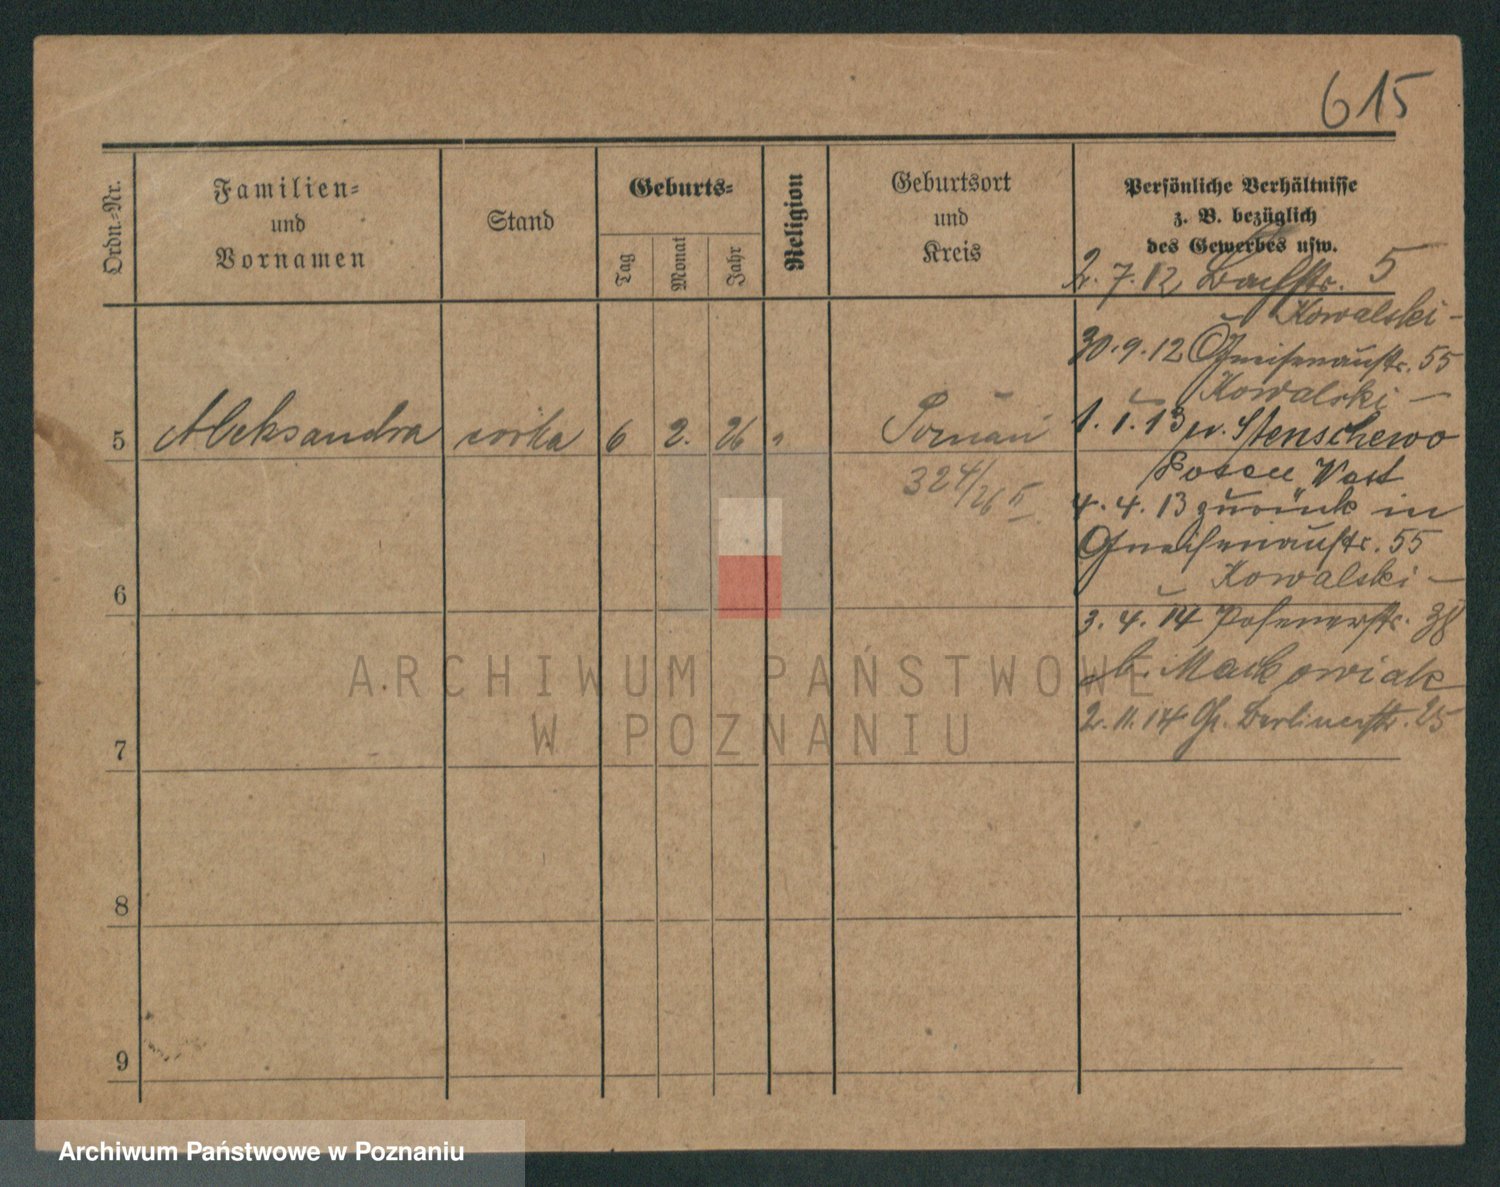 615
Ordn.-Nr.
Familien-
und
Vornamen
Stand
Geburts-
Tag
Monat
Jahr
Religion
Geburtsort
und
Kreis
Persönliche Verhältnisse
z. B. bezüglich
des Gewerbes usw.
2. 7. 12 Bachstr. 5
Kowalski -
30. 9. 12 Gneisenaustr. 55
Kowalski -
5 Aleksandra córka 6 2. 26 " Poznań
324/26 II
1. 1. 13 n. Stenschewo
Posen West
4. 4. 13 zurück in
Gneisenaustr. 55
Kowalski -
6
3. 4. 14 Posenerstr. 38
b. Mackowiak
2. 11. 14 Gr. Berlinerstr. 25
7
8
9
ARCHIWUM PAŃSTWOWE
W POZNANIU
Archiwum Państwowe w Poznaniu